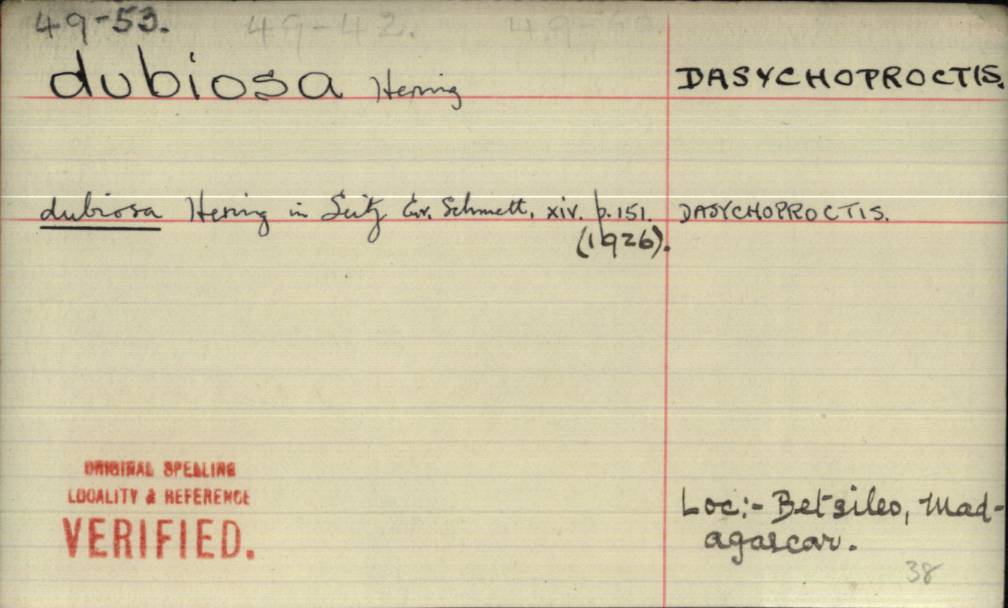 49-53. 49-42.
dubiosa Hering DASYCHOPROCTIS.
dubiosa Hering in Seitz Gr. Schmett, xiv. p. 151. DASYCHOPROCTIS.
(1926).
ORIGINAL SPELLING
LOCALITY & REFERENCE
VERIFIED.
Loc:- Betsileo, Mad-
agascar.
38